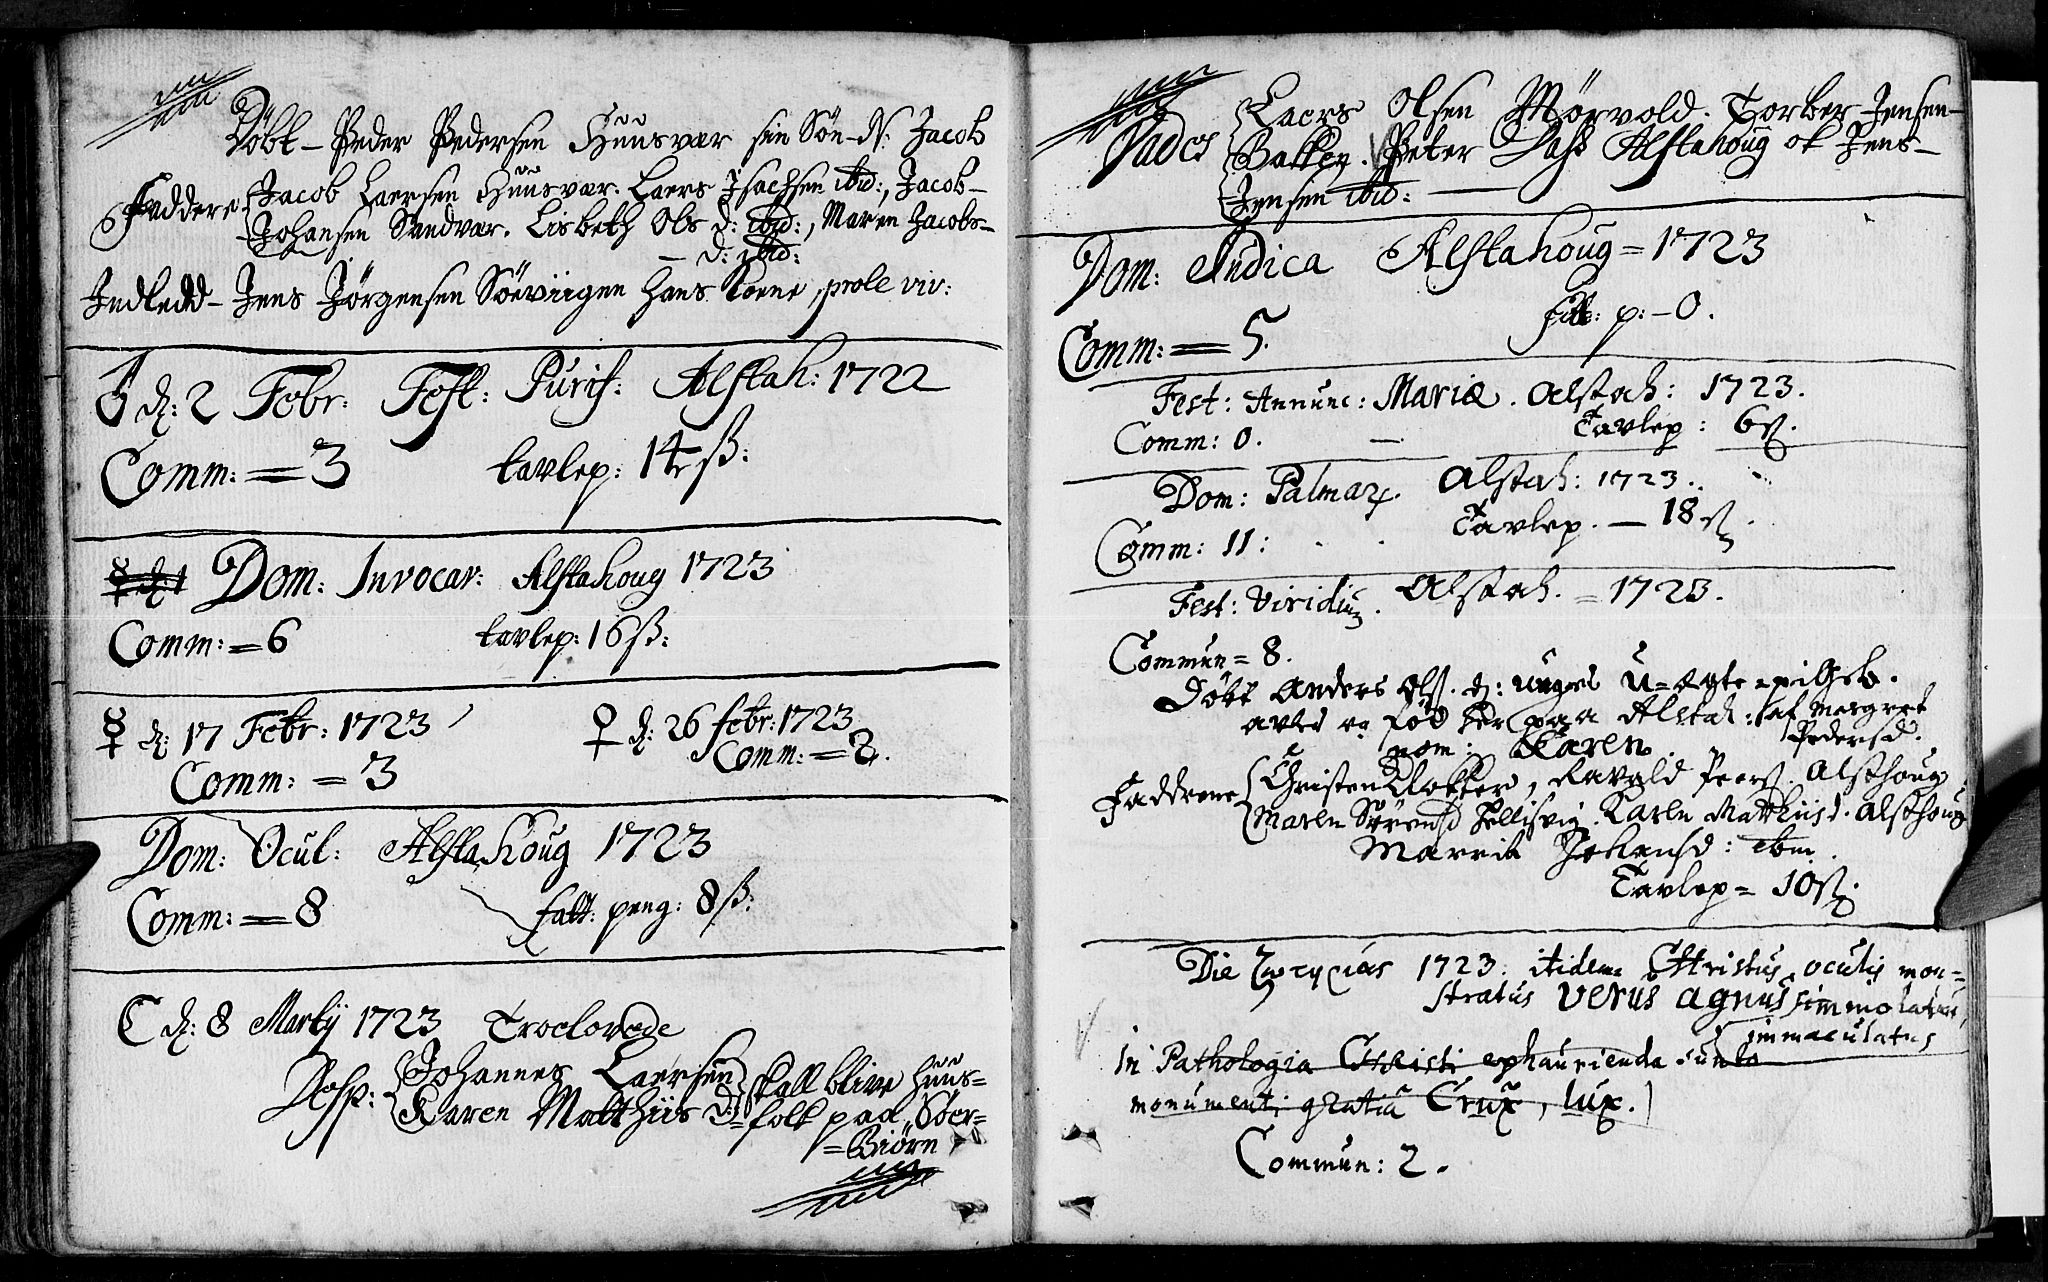 Döbt – Peder Pedersen Huusvær sin Søn – N: Jacob
Faddere Jacob Laersen Huusvær. Laers Isachsen ibid:, Jacob –
Johansen Sandvær. Lisbeth Ols d: ibid:, Maren Jacobs –
– d: ibid:
Indledd – Jens Jörgensen Söeviigen hans Kone, prole viv:
d: 2 Febr: Fest: Purif: Alstah: 1722
Comm: = 3 tavlep: 14 ß:
Dom: Invocav: Alstahoug 1723
Comm: = 6 tavlep: 16 ß:
☿ d: 17 Febr: 1723 ♀ d: 26 febr: 1723
Comm: = 3 Comm: = 2.
Dom: Ocul: Alstahoug 1723
Comm: = 8 fatt: peng: 8 ß:
☾ d: 8 Martij 1723 Troelovede
Desp: Johannes Laersen skall blive Huus=
Karen Matthiis d: folk paa Söer=
=Biörn
Vades Laers Olsen Mörvold. Torber Jensen –
Bakken. Peter Dass Alstahoug ok Jens –
Jensen ibid:
Dom: Judica Alstahoug = 1723
p: – 0.
Comm: = 5.
Fest: Annunc: Mariæ. Alstah: 1723.
Comm: 0. – Tavlep: 6 ß.
Dom: Palmar. Alstah: 1723.
Comm: 11: Tavlep. – 18 ß.
Fest: Viridium. Alstah. = 1723.
Commun = 8.
Döbt Anders Ols. d: unges u=ægte
avlet og föd her paa Alstah: af Margret
nom: Karen. Pedersd.
Faddrene Christen Klokker, Ravald Peers. Alsthoug
Maren Sörensd Karen Matthiisd. Alsthoug
Marrit Johansd: ibm.
Tavlep = 10 ß.
Die 1723: itidem Christus oculis mon=
stratus verus agnus immolatus,
immaculatus
In Pathologia Christi exhaurienda sunto
monumenti gratiâ Crux, lux.
Commun: 2.